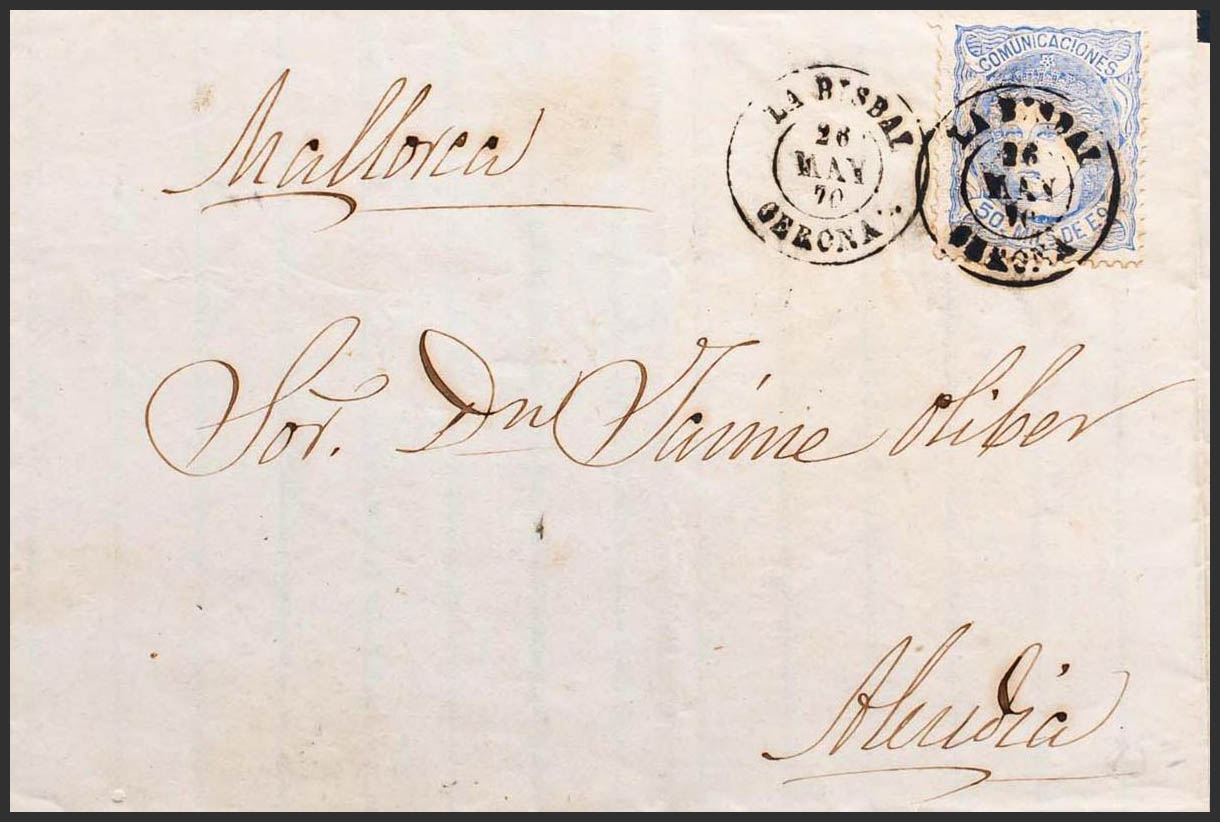 Mallorca
LA BISBAL
26
MAY
70
GERONA
COMUNICACIONES
LA BISBAL
26
MAY
70
50 MILS DE Eº
GERONA
Sor. Dn Jaime Oliber
Alcudia